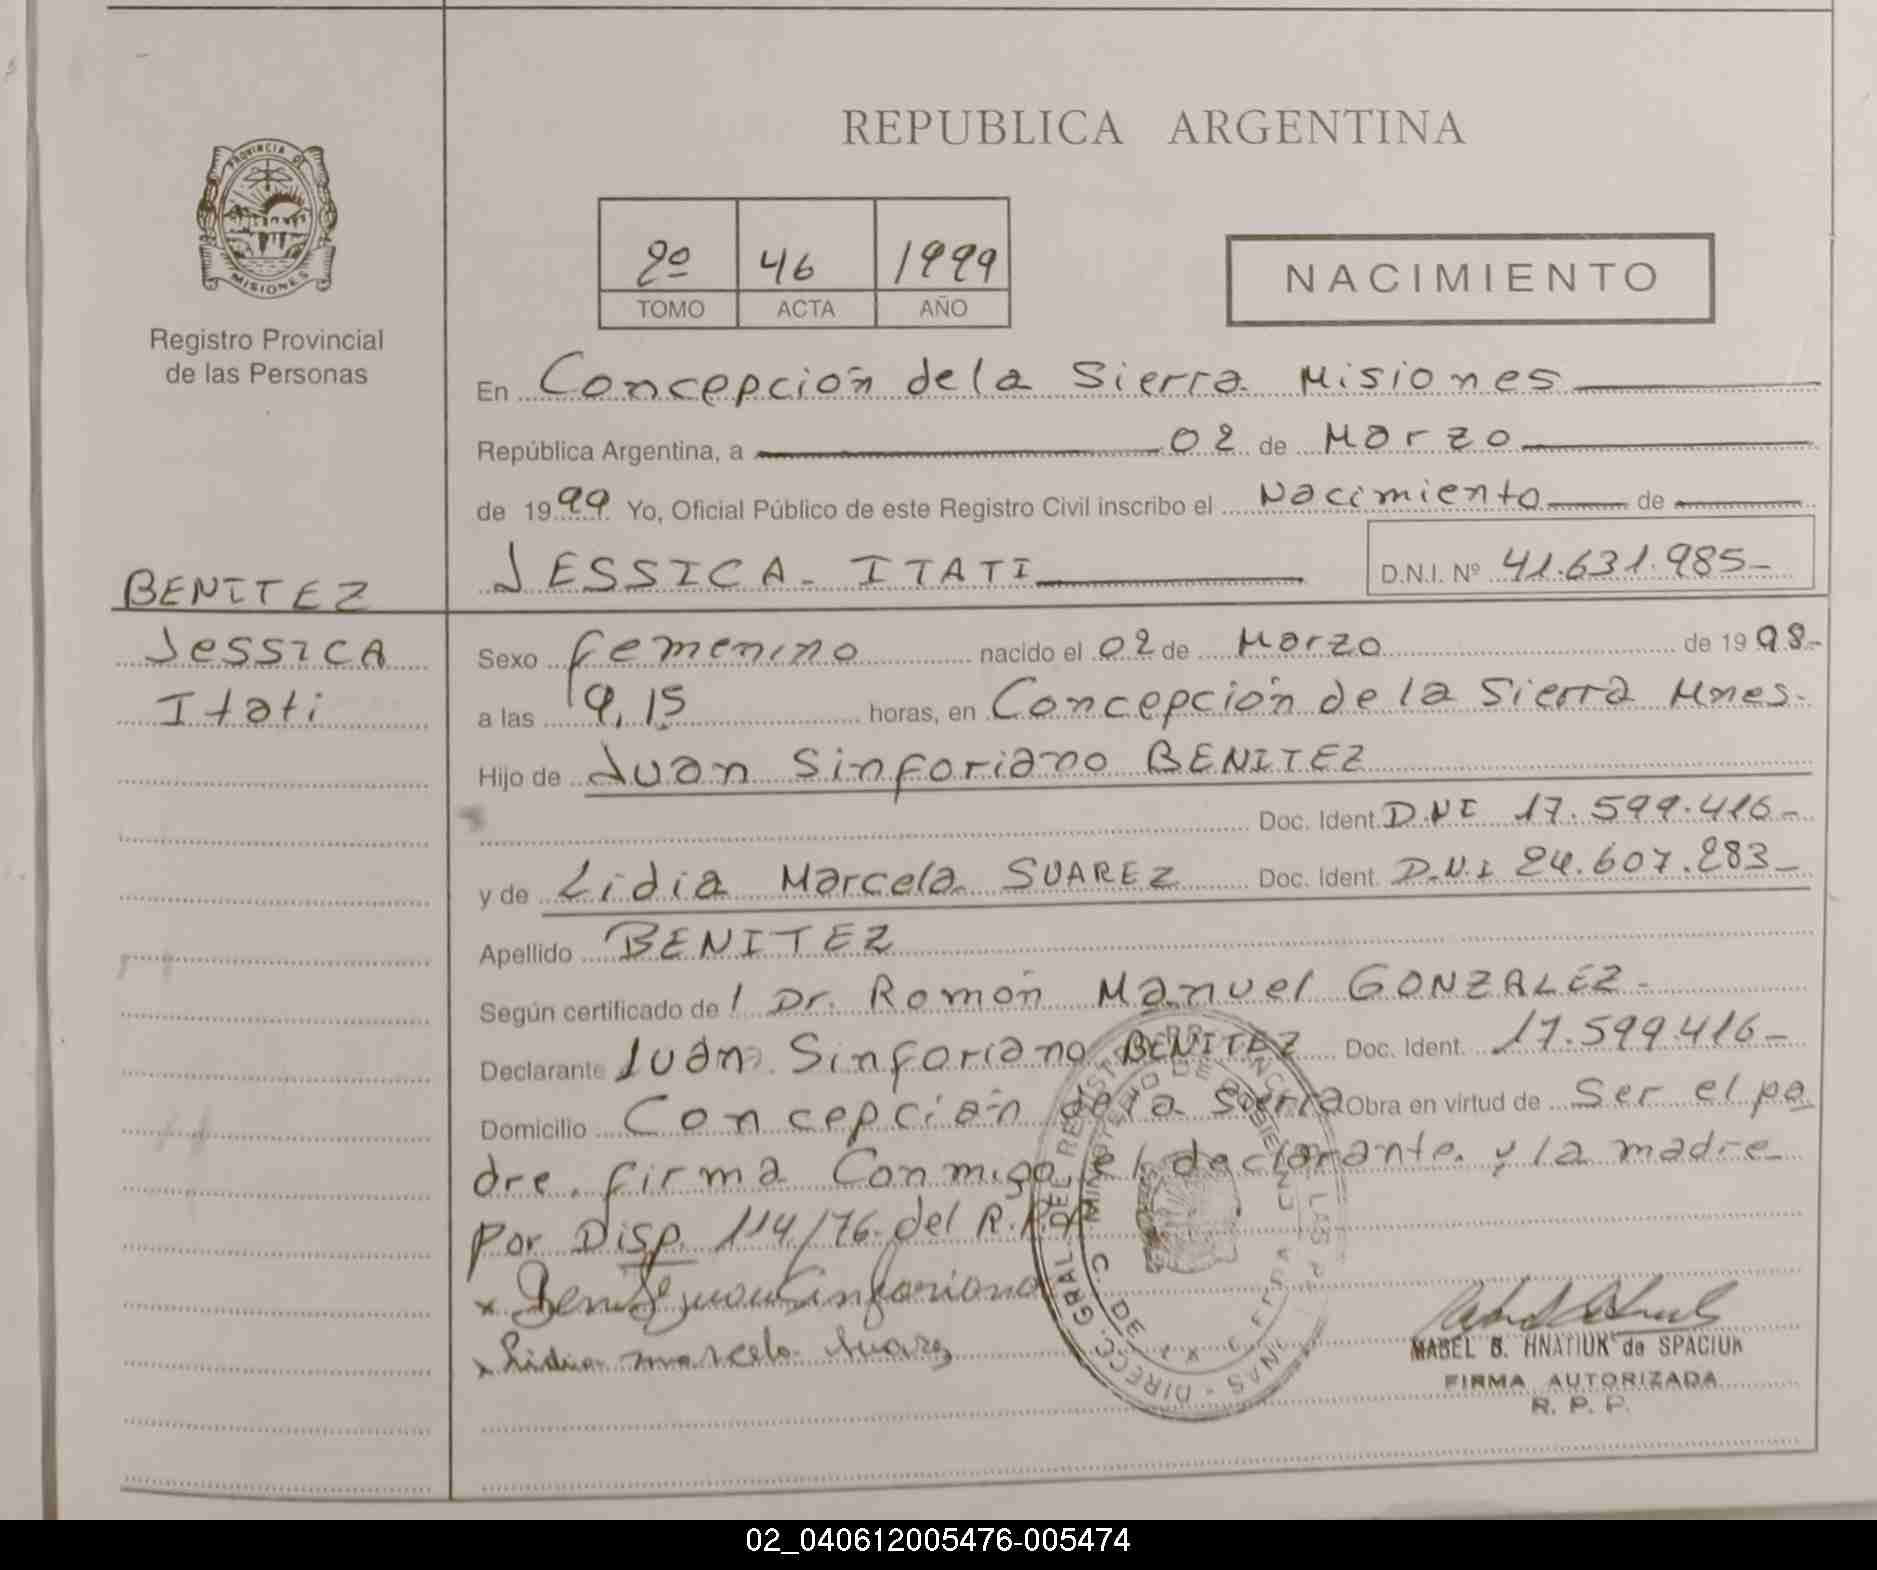 REPUBLICA ARGENTINA
PROVINCIA DE MISIONES
Registro Provincial
de las Personas
2º 46 1999
TOMO ACTA AÑO
NACIMIENTO
En Concepción de la Sierra Misiones
República Argentina, a 02 de Marzo
de 1999 Yo, Oficial Público de este Registro Civil inscribo el Nacimiento de
JESSICA ITATI D.N.I. Nº 41.631.985-
BENITEZ
Jessica
Itati
Sexo femenino nacido el 02 de Marzo de 1998-
a las 9,15 horas, en Concepción de la Sierra Mnes.
Hijo de Juan Sinforiano BENITEZ
Doc. Ident. D.NI 17.599.416-
y de Lidia Marcela SUAREZ Doc. Ident. D.N.I 24.607.283-
Apellido BENITEZ
Según certificado de l Dr. Ramón Manuel GONZALEZ-
Declarante Juan Sinforiano BENITEZ Doc. Ident. 17.599.416-
Domicilio Concepción de la Sierra Obra en virtud de Ser el pa
dre. firma Conmigo el declarante y la madre
por Disp. 114/76 del R.P.P.
x Benitez Juan Sinforiano
x Lidia Marcela Suarez
MABEL B. HNATIUK de SPACIUK
FIRMA AUTORIZADA
R. P. P.
02_040612005476-005474